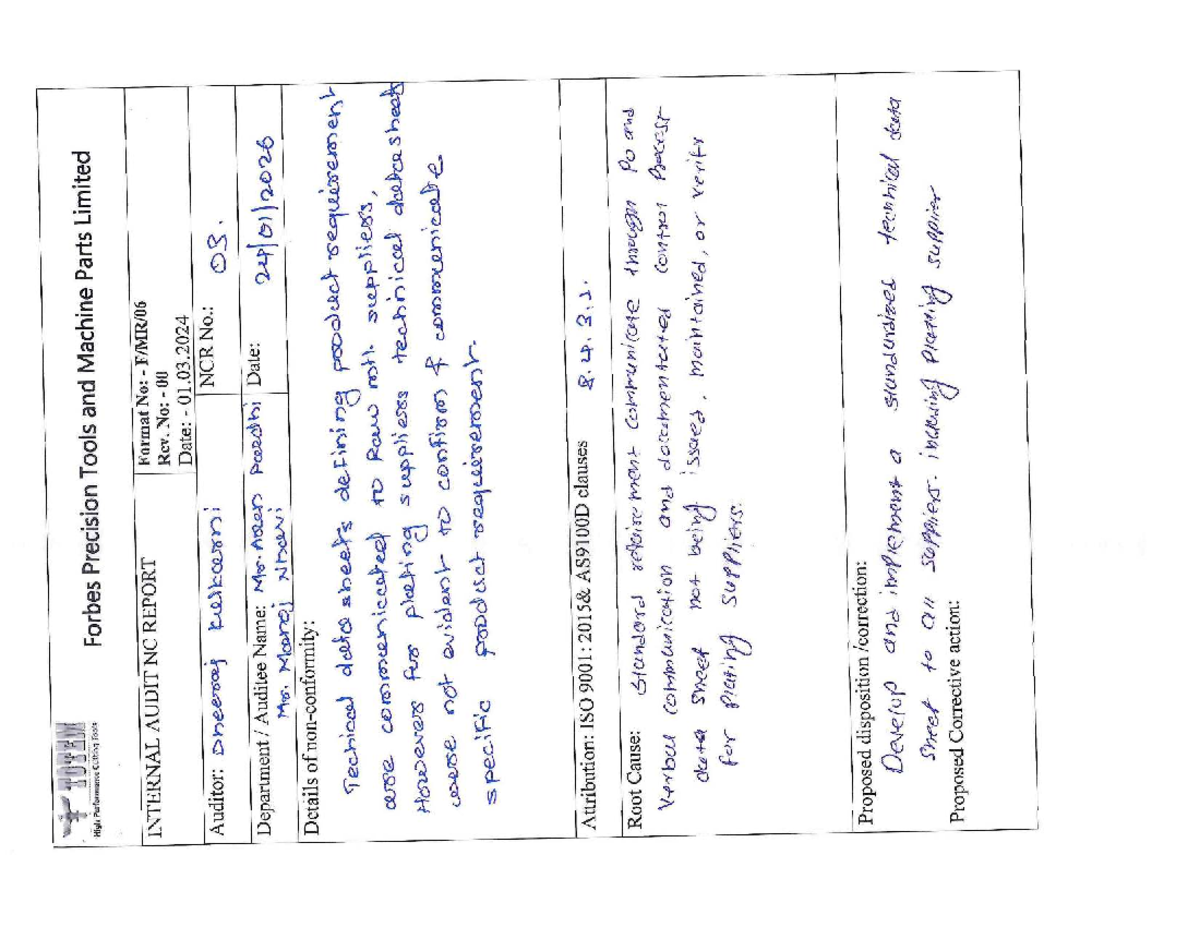 TOTEM
High Performance Cutting Tools
Forbes Precision Tools and Machine Parts Limited
INTERNAL AUDIT NC REPORT
Format No: - F/MR/06
Rev. No: - 00
Date: - 01.03.2024
Auditor: Dheeraj Kulkarni
NCR No.: 03.
Department / Auditee Name: Mr. Paedhi
Mr. Manoj
Date: 24/01/2026
Details of non-conformity:
Techical data sheets defining product requirement
are communicated to Raw mtl. suppliers,
However for plating suppliers technical datasheets
were not evident to confirm & communicate
specific product requirement.
Attribution: ISO 9001: 2015& AS9100D clauses 8.4.3.
Root Cause: Standard communicate through Po and
Verbal communication and documentated control Process
data sheet not being issued, maintained, or verify
for Plating Suppliers.
Proposed disposition /correction:
Develop and implement a standardized technical data
Sheet to all suppliers. including Plating supplier
Proposed Corrective action: